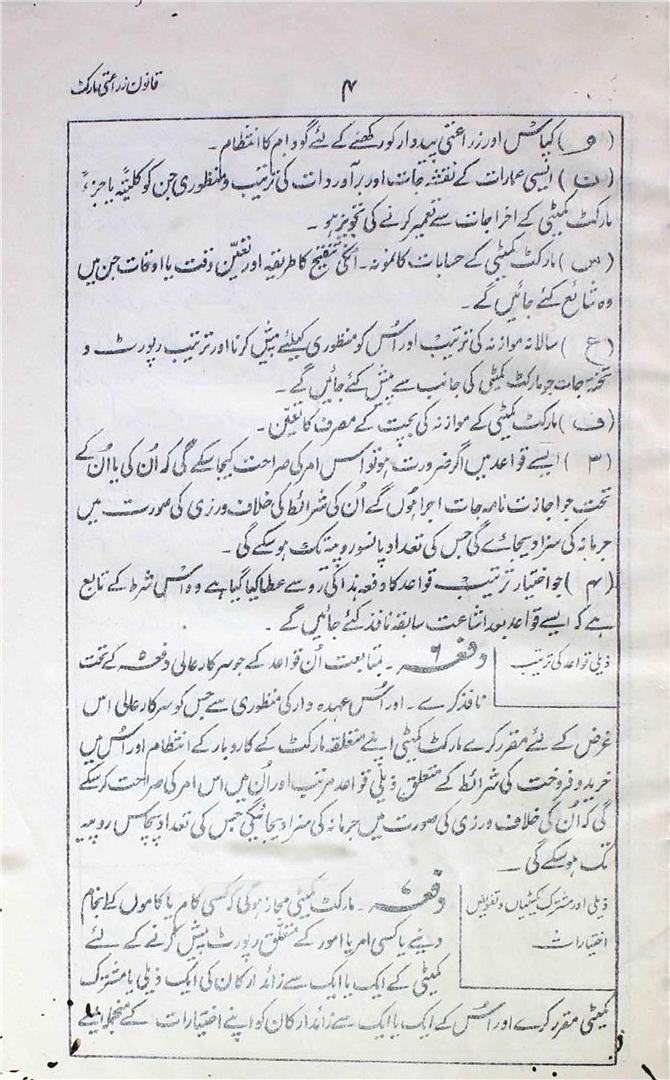 قانون زراعتی مارکٹ
۴
(و) کپاس اور زراعتی پیداوار کو رکھنے کے لئے گودام کا انتظام ۔
(ن) ایسی عمارات کے نقشہ جات اور برآوردات کی ترتیب و منظوری جن کو کلیتہً یا جزءً
مارکٹ کمیٹی کے اخراجات سے تعمیر کرنے کی تجویز ہو ۔
(س) مارکٹ کمیٹی کے حسابات کا نمونہ ۔ انکی تنقیح کا طریقہ اور تعین وقت یا اوقات جن میں
وہ شائع کئے جائیں گے ۔
(ع) سالانہ موازنہ کی ترتیب اور اُس کو منظوری کیلئے پیش کرنا اور ترتیب رپورٹ و
تختہ جات جو مارکٹ کمیٹی کی جانب سے پیش کئے جائیں گے ۔
(ف) مارکٹ کمیٹی کے موازنہ کی بچت کے مصرف کا تعین ۔
(۳) ایسے قواعد میں اگر ضرورت ہو تو اس امر کی صراحت کیجا سکے گی کہ اُن کی یا اُن کے
تحت جو اجازت نامہ جات اجرا ہوں گے اُن کی شرائط کی خلاف ورزی کی صورت میں
جرمانہ کی سزا دیجائے گی جس کی تعداد پانسو روپیہ تک ہو سکے گی ۔
(۴) جو اختیار ترتیب قواعد کا دفعہ ہذا کی رو سے عطا کیا گیا ہے وہ اس شرط کے تابع
ہے کہ ایسے قواعد بعد اشاعت سابقہ نافذ کئے جائیں گے ۔
ذیلی قواعد کی ترتیب
دفعہ ۶ ۔ بمتابعت اُن قواعد کے جو سرکار عالی دفعہ ۵ کے تحت
نافذ کرے ۔ اور اُس عہدہ دار کی منظوری سے جس کو سرکار عالی اس
غرض کے لئے مقرر کرے مارکٹ کمیٹی اپنے متعلقہ مارکٹ کے کاروبار کے انتظام اور اُس میں
خرید و فروخت کی شرائط کے متعلق ذیلی قواعد مرتب اور اُن میں اس امر کی صراحت کر سکے
گی کہ اُن کی خلاف ورزی کی صورت میں جرمانہ کی سزا دیجائیگی جس کی تعداد پچاس روپیہ
تک ہو سکے گی ۔
ذیلی اور مشترک کمیٹیاں و تفویض
اختیارات
دفعہ ۷ ۔ مارکٹ کمیٹی مجاز ہوگی کہ کسی کام یا کاموں کے انجام
دینے یا کسی امر یا امور کے متعلق رپورٹ پیش کرنے کے لئے
کمیٹی کے ایک یا ایک سے زائد ارکان کی ایک ذیلی یا مشترک
کمیٹی مقرر کرے اور اُس کے ایک یا ایک سے زائد ارکان کو اپنے اختیارات کے منجملہ ایسے